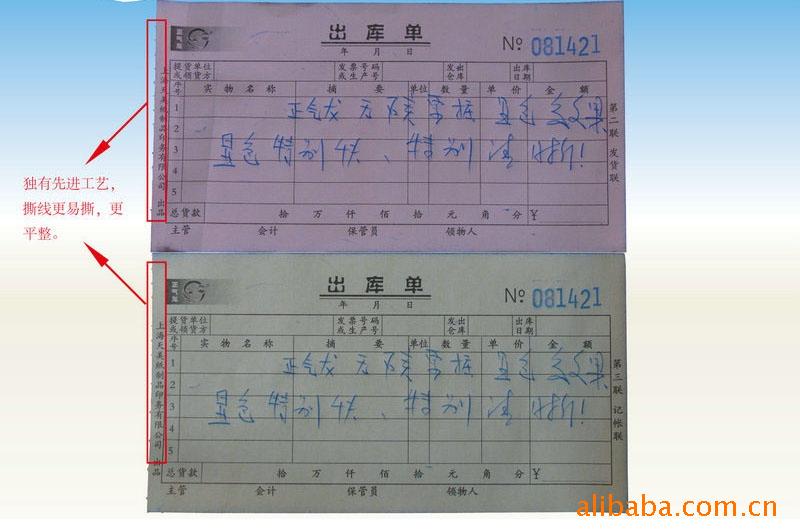 正气龙
出库单
年 月 日
No 081421
提货单位
或领货方
发票号码
或生产号
发出
仓库
出库
日期
序号
实物名称
摘 要
单位
数量
单价
金 额
1
正气龙 无碳票据 显色效果
2
3
显色特别快、特别清晰!
4
5
总货款
拾 万 仟 佰 拾 元 角 分 ¥
主管 会计 保管员 领物人
第二联 发货联
上海天美纸制品印务有限公司 出品
独有先进工艺,
撕线更易撕,更
平整。
正气龙
出库单
年 月 日
No 081421
提货单位
或领货方
发票号码
或生产号
发出
仓库
出库
日期
序号
实物名称
摘 要
单位
数量
单价
金 额
1
正气龙 无碳票据 显色效果
2
3
显色特别快、特别清晰!
4
5
总货款
拾 万 仟 佰 拾 元 角 分 ¥
主管 会计 保管员 领物人
第三联 记帐联
上海天美纸制品印务有限公司 出品
alibaba.com.cn